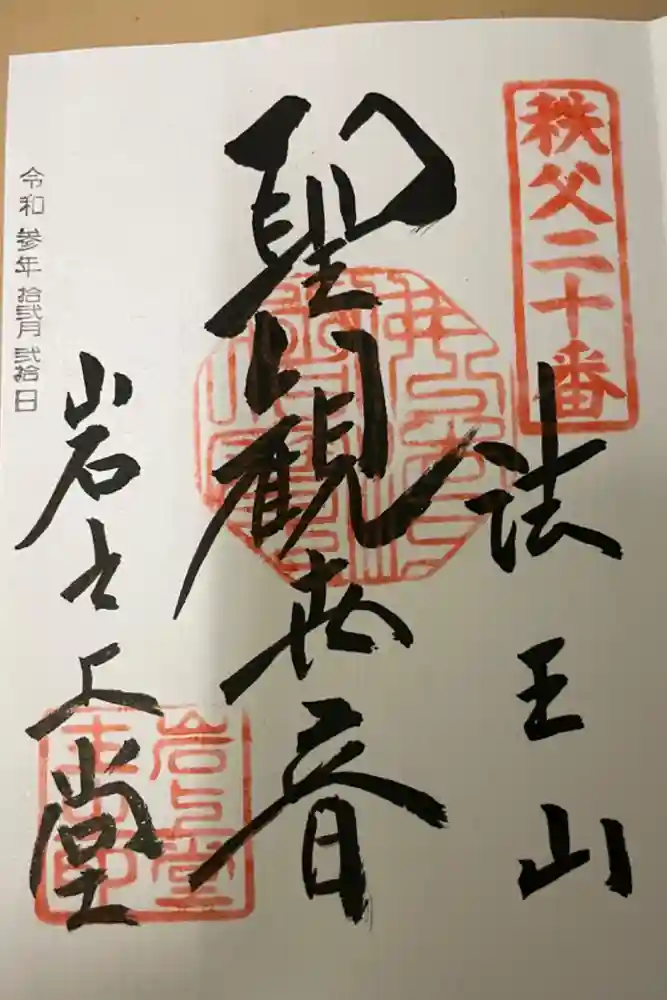 秩父二十番
法王山
聖観世音
岩之上堂
岩上堂
令和 参年 拾弐月 弐拾日